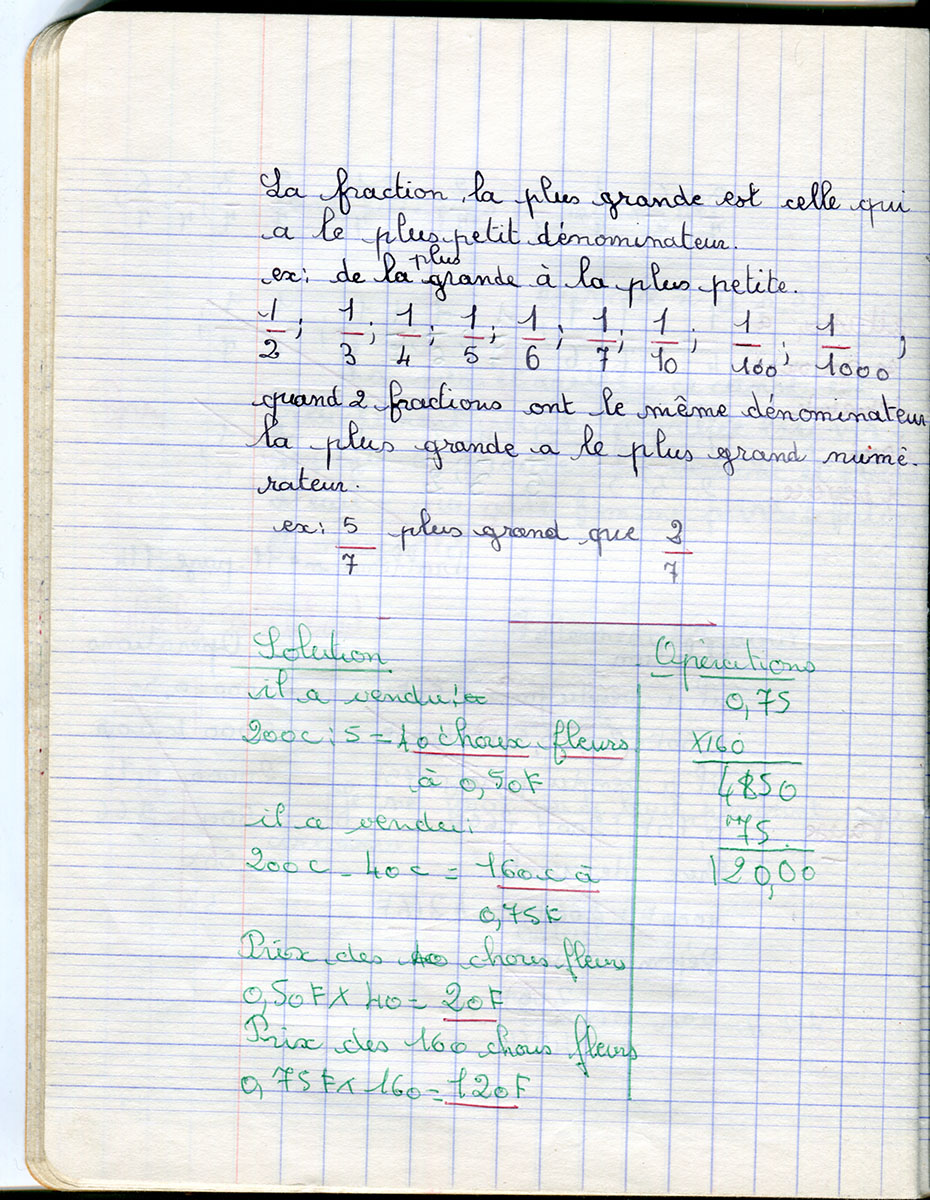 La fraction la plus grande est celle qui
a le plus petit dénominateur.
ex: de la plus grande à la plus petite.
1/2; 1/3; 1/4; 1/5; 1/6; 1/7; 1/10; 1/100; 1/1000,
quand 2 fractions ont le même dénominateur
la plus grande a le plus grand numé-
rateur.
ex: 5/7 plus grand que 2/7
Solution
il a vendu:
200c : 5 = 40 choux fleurs
à 0,50F
il a vendu:
200c - 40c = 160c à
0,75F
Prix des 40 chous fleurs
0,50F x 40 = 20F
Prix des 160 chous fleurs
0,75F x 160 = 120F
Opérations
0,75
x160
4850
75
120,00